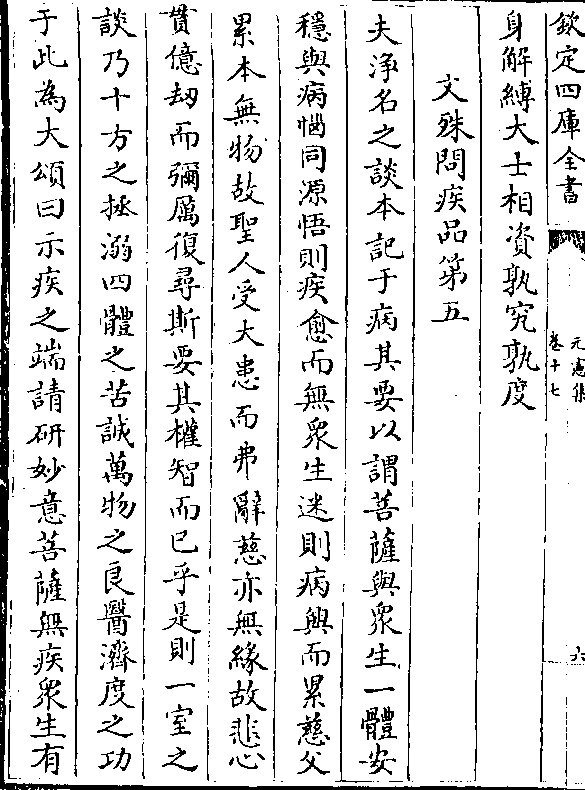 欽定四庫全書
元憲集
卷十七
六
身解縛大士相資孰究孰度
文殊問疾品第五
夫淨名之談本記于病其要以謂菩薩與衆生一體安
穩與病惱同源悟則疾愈而無衆生迷則病興而累慈父
累本無物故聖人受大患而弗辭慈亦無緣故悲心
貫億劫而彌厲復尋斯要其權智而已乎是則一室之
談乃十方之拯溺四體之苦誠萬物之良醫濟度之功
于此為大頌曰示疾之端請研妙意菩薩無疾衆生有